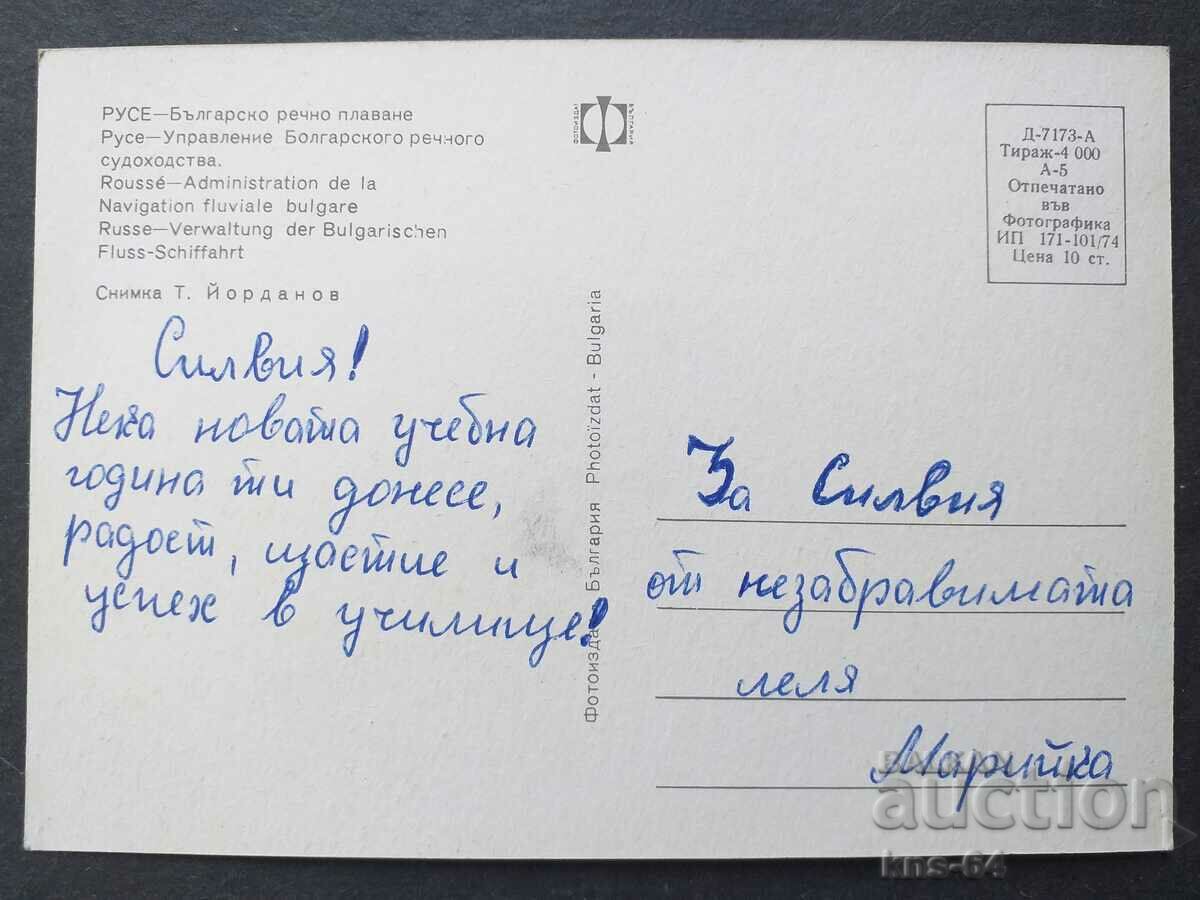 РУСЕ—Българско речно плаване
Русе—Управление Болгарского речного
судоходства.
Roussé—Administration de la
Navigation fluviale bulgare
Russe—Verwaltung der Bulgarischen
Fluss-Schiffahrt
Снимка Т. Йорданов
Силвия!
Нека новата учебна
година ти донесе,
радост, щастие и
успех в училище!
ФОТОИЗДАТ БЪЛГАРИЯ
Фотоиздат България Photoïzdat - Bulgaria
Д-7173-А
Тираж-4 000
А-5
Отпечатано
във
Фотографика
ИП 171-101/74
Цена 10 ст.
За Силвия
от незабравимата
леля
Марийка
BALKAN
auction
kns-64